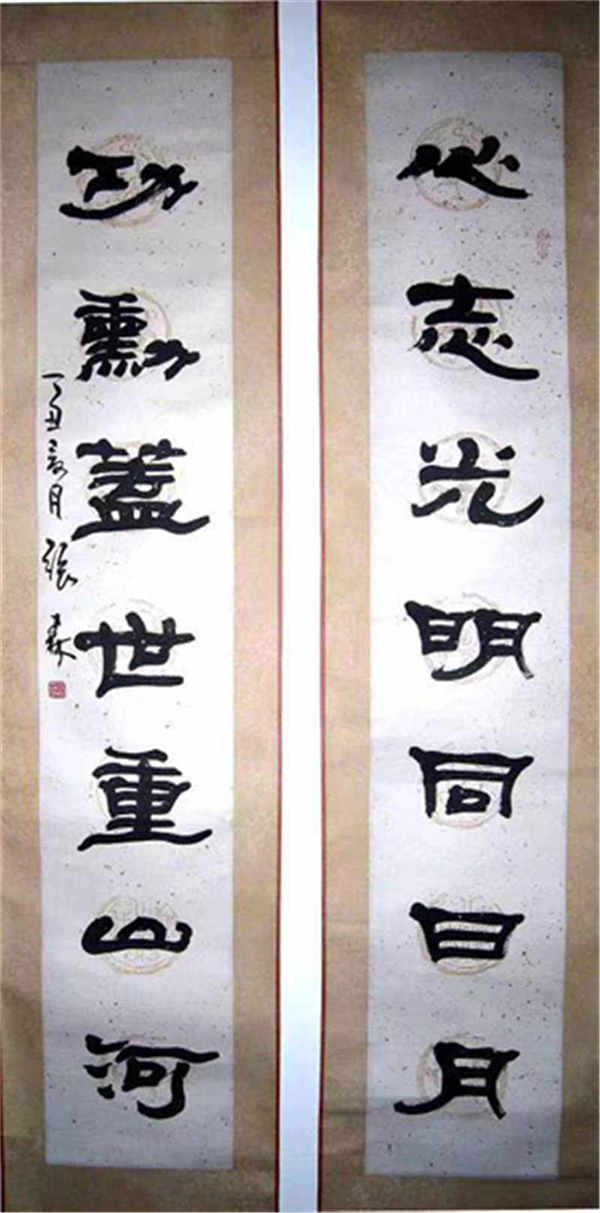 心志光明同日月
功勳蓋世重山河
丁丑之月張森